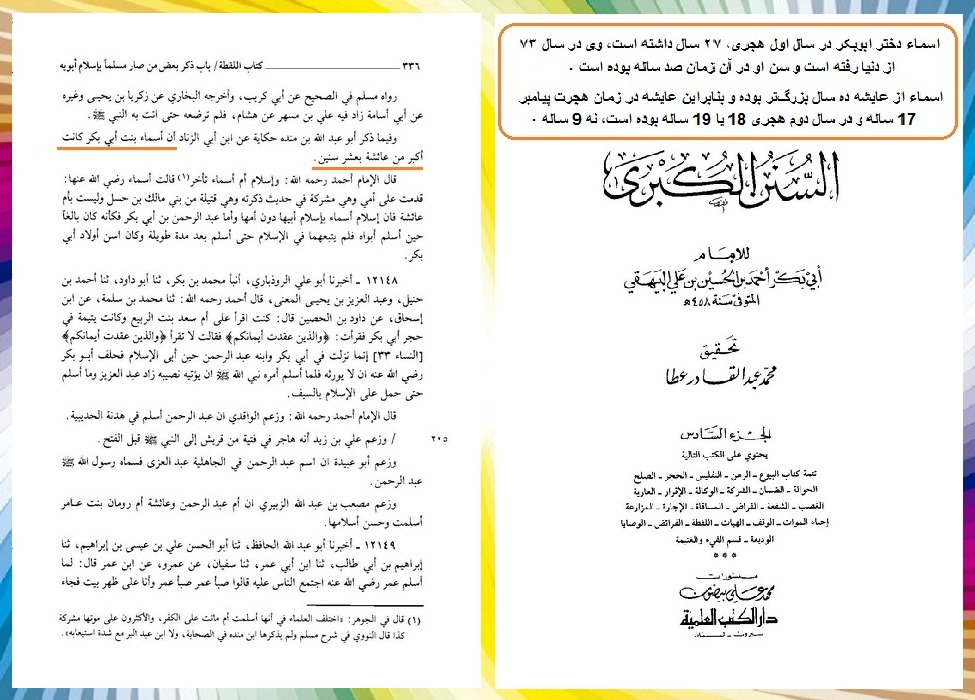 اسماء دختر ابوبکر در سال اول هجری، ۲۷ سال داشته است، وی در سال ۷۳
از دنیا رفته است و سن او در آن زمان صد ساله بوده است .
اسماء از عایشه ده سال بزرگـتر بوده و بنابراین عایشه در زمان هجرت پیامبر
17 ساله و در سال دوم هجری 18 یا 19 ساله بوده است، نه 9 ساله .
السنن الكبرى
للإمام
أبي بكر أحمد بن الحسين بن علي البيهقي
المتوفى سنة ٤٥٨ هـ
تحقيق
محمد عبد القادر عطا
الجزء السادس
يحتوي على الكتب التالية
تتمة كتاب البيوع ـ الرهن ـ التفليس ـ الحجر ـ الصلح
الحوالة ـ الضمان ـ الشركة ـ الوكالة ـ الإقرار ـ العارية
الغصب ـ الشفعة ـ القراض ـ المساقاة ـ الإجارة ـ المزارعة
إحياء الموات ـ الوقف ـ الهبات ـ اللقطة ـ الفرائض ـ الوصايا
الوديعة ـ قسم الفيء والغنيمة
***
منشورات
محمد علي بيضون
دار الكتب العلمية
بيروت ـ لبنان
٣٣٦ ـــــ كتاب اللقطة / باب ذكر بعض من صار مسلماً بإسلام أبويه
رواه مسلم في الصحيح عن أبي كريب، وأخرجه البخاري عن زكريا بن يحيى وغيره
عن أبي أسامة زاد فيه علي بن مسهر عن هشام، فلم ترضعه حتى اتت به النبي ﷺ.
وفيما ذكر أبو عبد الله بن منده حكاية عن ابن أبي الزناد أن أسماء بنت أبي بكر كانت
أكبر من عائشة بعشر سنين.
قال الإمام أحمد رحمه الله: وإسلام أم أسماء تأخر(١) قالت أسماء رضي الله عنها:
قدمت على أمي وهي مشركة في حديث ذكرته وهي قتيلة من بني مالك بن حسل وليست بأم
عائشة فان إسلام أسماء بإسلام أبيها دون أمها وأما عبد الرحمن بن أبي بكر فكأنه كان بالغاً
حين أسلم أبواه فلم يتبعهما في الإسلام حتى أسلم بعد مدة طويلة وكان اسن أولاد أبي
بكر.
١٢١٤٨ ـ أخبرنا أبو علي الروذباري، أنبأ محمد بن بكر، ثنا أبو داود، ثنا أحمد بن
حنبل، وعبد العزيز بن يحيى المعنى، قال أحمد رحمه الله: ثنا محمد بن سلمة، عن ابن
إسحاق، عن داود بن الحصين قال: كنت اقرأ على أم سعد بنت الربيع وكانت يتيمة في
حجر أبي بكر فقرأت: ﴿والذين عقدت أيمانكم﴾ فقالت لا تقرأ ﴿والذين عقدت أيمانكم﴾
[النساء ٣٣] إنما نزلت في أبي بكر وابنه عبد الرحمن حين أبى الإسلام فحلف أبو بكر
رضي الله عنه ان لا يورثه فلما أسلم أمره نبي الله ﷺ ان يؤتيه نصيبه زاد عبد العزيز وما أسلم
حتى حمل على الإسلام بالسيف.
قال الإمام أحمد رحمه الله: وزعم الواقدي ان عبد الرحمن أسلم في هدنة الحديبية.
٢٠٥ / وزعم علي بن زيد أنه هاجر في فتية من قريش إلى النبي ﷺ قبل الفتح.
وزعم أبو عبيدة ان اسم عبد الرحمن في الجاهلية عبد العزى فسماه رسول الله ﷺ
عبد الرحمن.
وزعم مصعب بن عبد الله الزبيري ان أم عبد الرحمن وعائشة أم رومان بنت عامر
أسلمت وحسن أسلامها.
١٢١٤٩ ـ أخبرنا أبو عبد الله الحافظ، ثنا أبو الحسن علي بن عيسى بن إبراهيم، ثنا
إبراهيم بن أبي طالب، ثنا ابن أبي عمر، ثنا سفيان، عن عمرو، عن ابن عمر قال: لما
أسلم عمر رضي الله عنه اجتمع الناس عليه قالوا صبأ عمر صبأ عمر وأنا على ظهر بيت فجاء
(١) قال في الجوهر: «اختلف العلماء في أنها أسلمت أم ماتت على الكفر، والأكثرون على موتها مشركة
كذا قال النووي في شرح مسلم ولم يذكرها ابن منده في الصحابة، ولا ابن عبد البر مع شدة استيعابه».